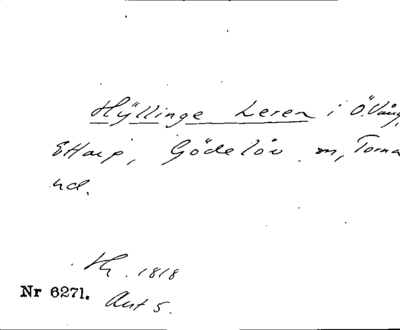 Hÿllinge Leren i Ö. Vång,
Ettarp, Gödelöv sn, Torna
hd.
1818
Nr 6271. Ant 5.